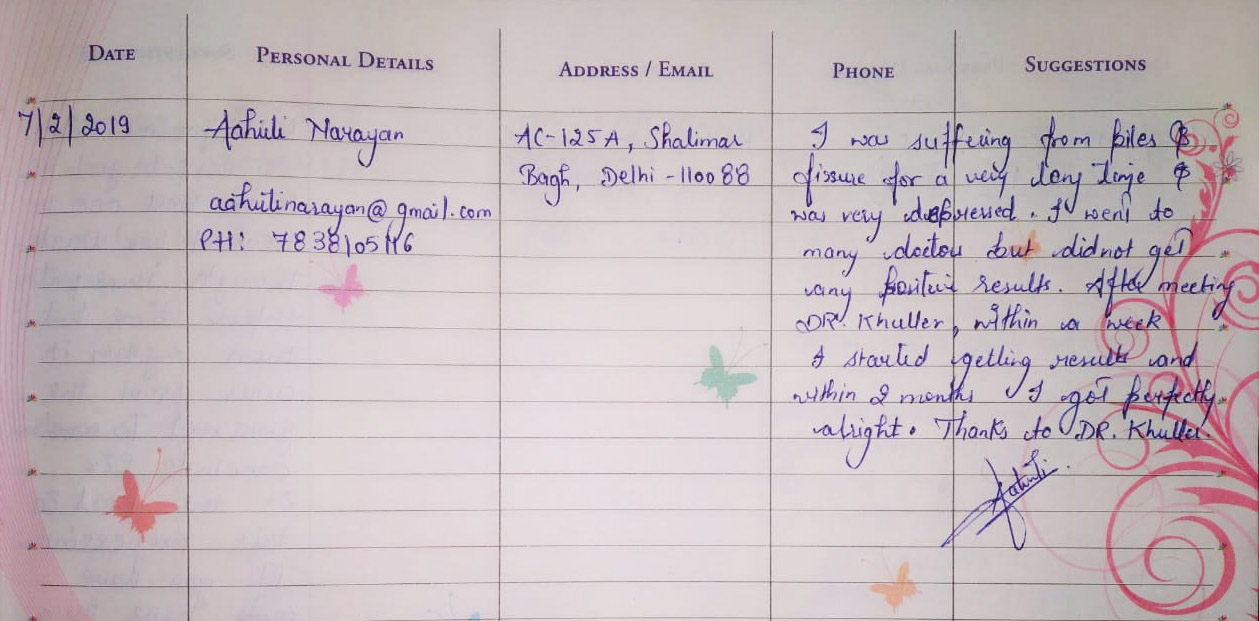 DATE PERSONAL DETAILS ADDRESS / EMAIL PHONE SUGGESTIONS
7/2/2019
Aahuti Narayan
aahutinarayan@gmail.com
PH: 7838105116
AC-125A, Shalimar
Bagh, Delhi - 110088
I was suffering from piles &
fissure for a very long time &
was very depressed. I went to
many doctors but did not get
any positive results. After meeting
DR. Khuller, within a week
I started getting results and
within 2 months I got perfectly
alright. Thanks to DR. Khuller.
Aahuti.